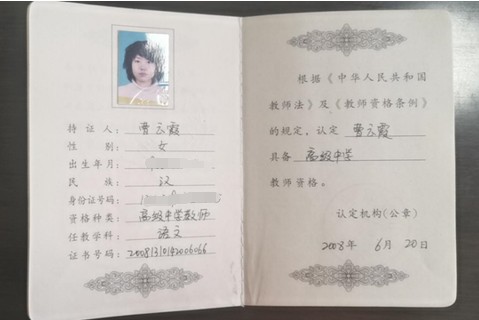 持证人：曹云霞
性别：女
出生年月：
民族：汉
身份证号码：
资格种类：高级中学教师
任教学科：语文
证书号码：20081310142006066
根据《中华人民共和国
教师法》及《教师资格条例》
的规定，认定 曹云霞
具备 高级中学
教师资格。
认定机构(公章)
2008年 6月 20日